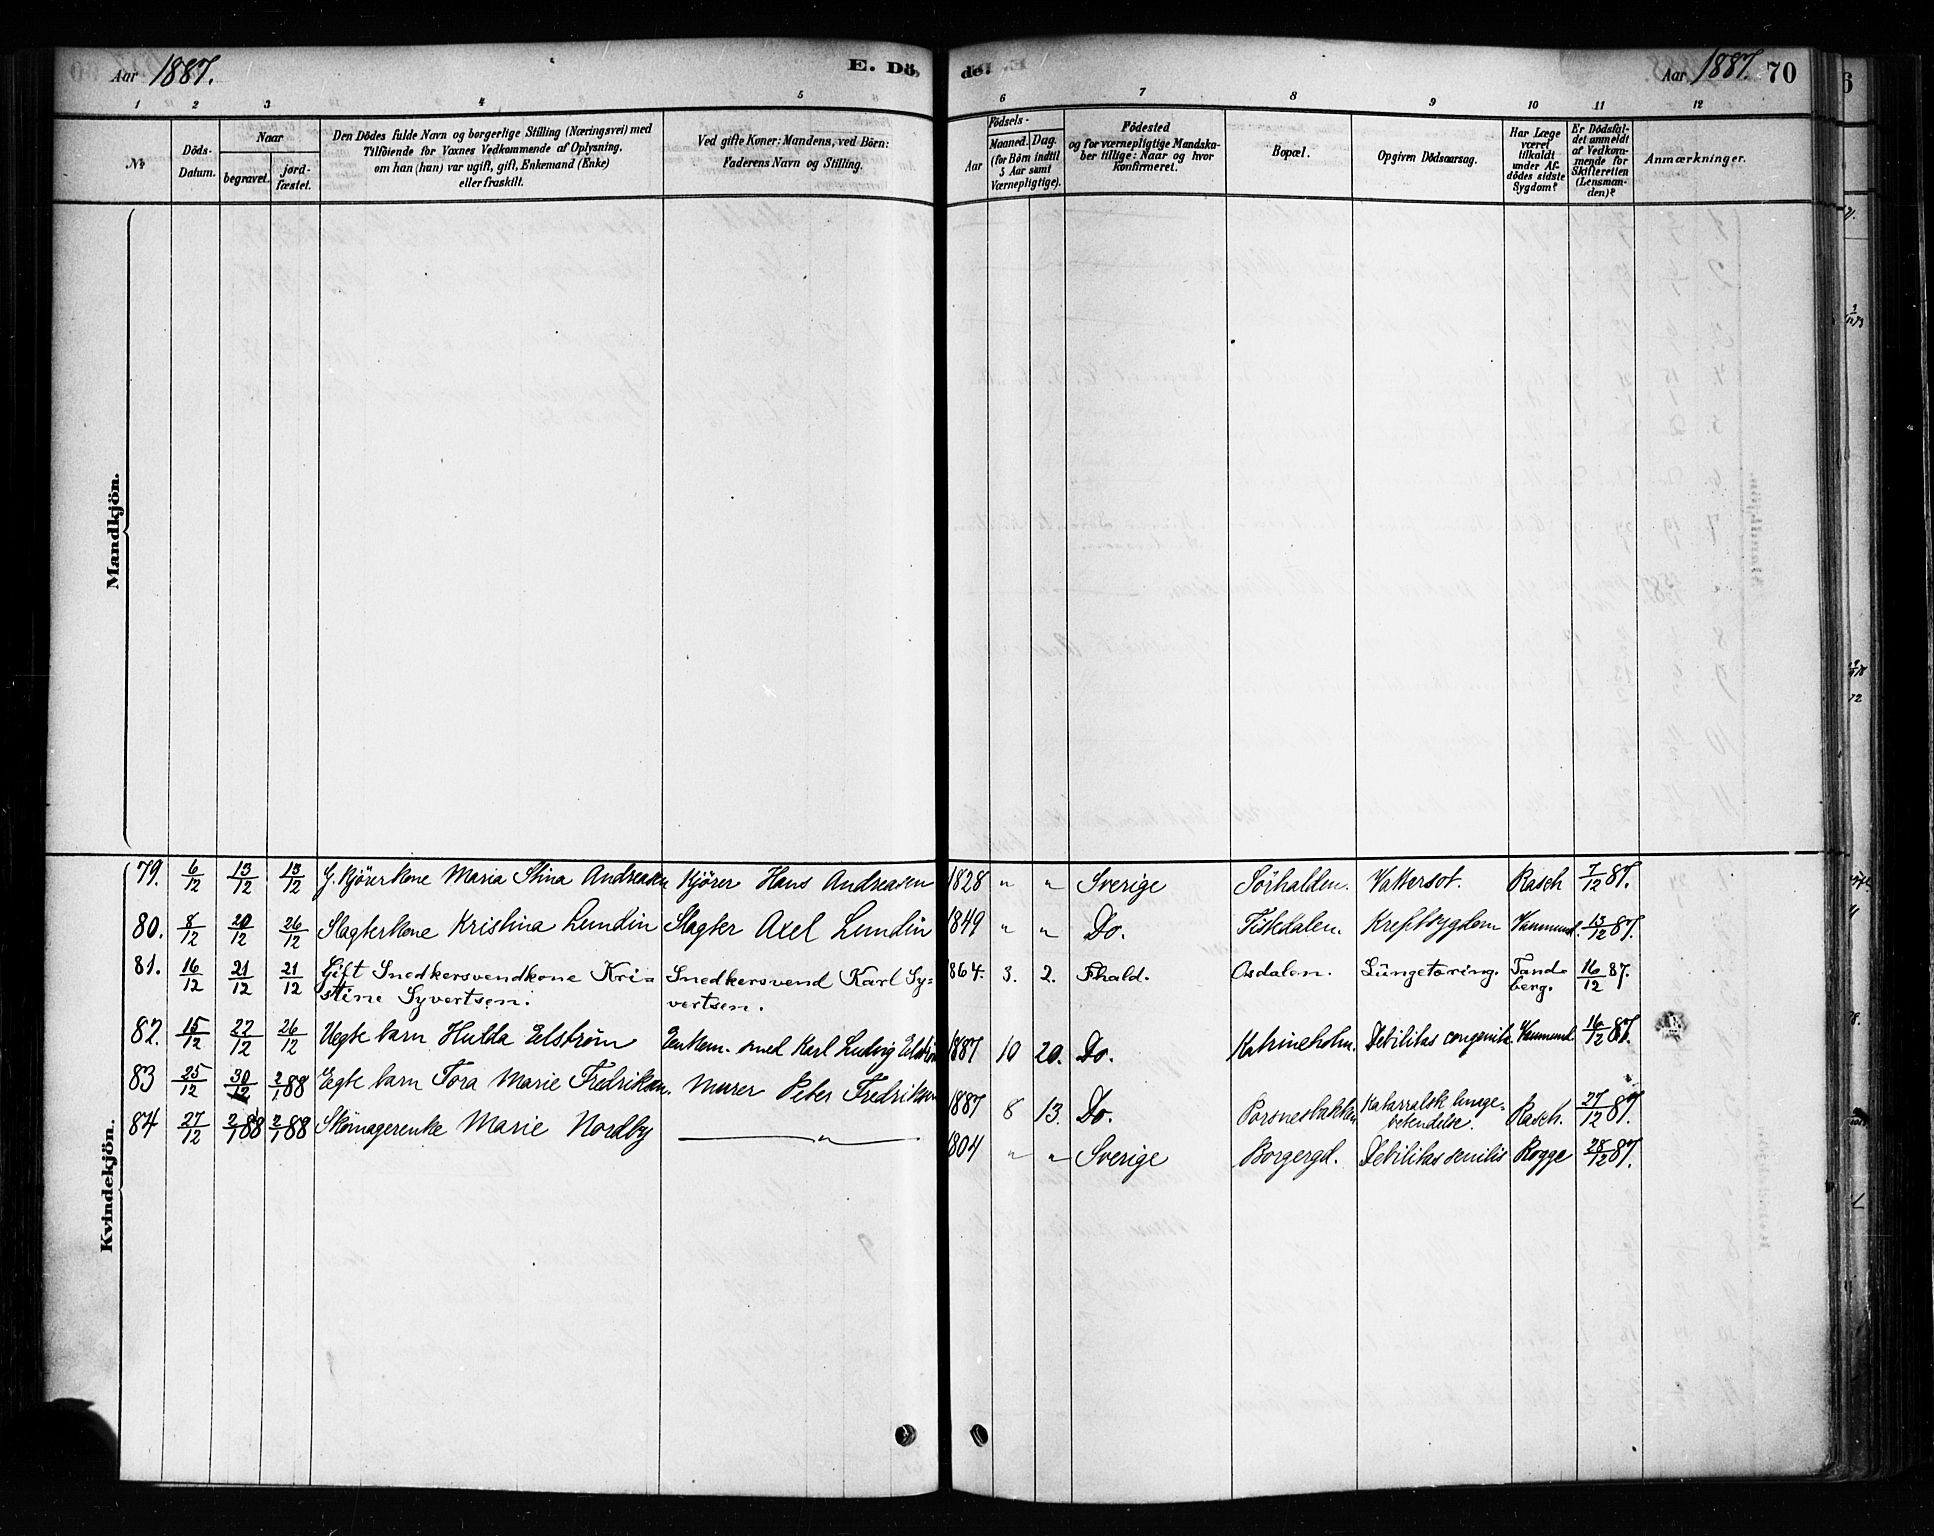 Aar 1887.
E. Dö
de!
Aar 1887. 70
1 2 3 4 5 6 7 8 9 10 11 12
No
Döds-
Datum.
Naar
begravet.
jord-
fæstet.
Den Dödes fulde Navn og borgerlige Stilling (Næringsvei) med
Tilföiende for Voxnes Vedkommende af Oplysning,
om han (hun) var ugift, gift, Enkemand (Enke)
eller fraskilt.
Ved gifte Koner: Mandens, ved Börn:
Faderens Navn og Stilling.
Födsels-
Aar
Maaned. Dag.
(for Börn indtil
5 Aar samt
Værnepligtige).
Födested
og for værnepligtige Mandska-
ber tillige: Naar og hvor
konfirmeret.
Bopæl.
Opgiven Dödsaarsag.
Har Læge
været
tilkaldt
under Af-
dödes sidste
Sygdom?
Er Dödsfal-
det anmeldt
af Vedkom-
mende for
Skifteretten
(Lensman-
den)?
Anmærkninger.
Mandkjön.
Kvindekjön.
79. 6/12 13/12 13/12 G. Kjörerkone Maria Stina Andreasen Kjörer Hans Andreasen 1828 " " Sverige Sörhalden. Vattersot. Rasch 7/12 87.
80. 8/12 20/12 26/12 Slagterkone Kristina Lundin Slagter Axel Lundin 1849 " " Do. Fiskdalen. Kræftsygdom 13/12 87.
81. 16/12 21/12 21/12 Gift Snedkersvendkone Kri-
stine Syvertsen. Snedkersvend Karl Sy-
vertsen. 1864. 3. 2. Fhald. Osdalen. Lungetæring. Tand-
berg. 16/12 87.
82. 15/12 22/12 26/12 Uegte barn Hulda Elström Ungkm. med Karl Ludvig Elström 1887 10 20. Do. Katrineholm. Debilitas congenita 16/12 87.
83 25/12 30/12 2/1 88 Egte barn Tora Marie Fredriksen. Murer Peter Fredriksen 1887 8 13. Do. Porsnesbakken Katarralsk lunge-
betendelse. Rasch. 27/12 87.
84 27/12 2/1 88 2/1 88 Skomagerenke Marie Nordby " 1804 " " Sverige Borgergd. Debilitas senilis Rogge 28/12 87.